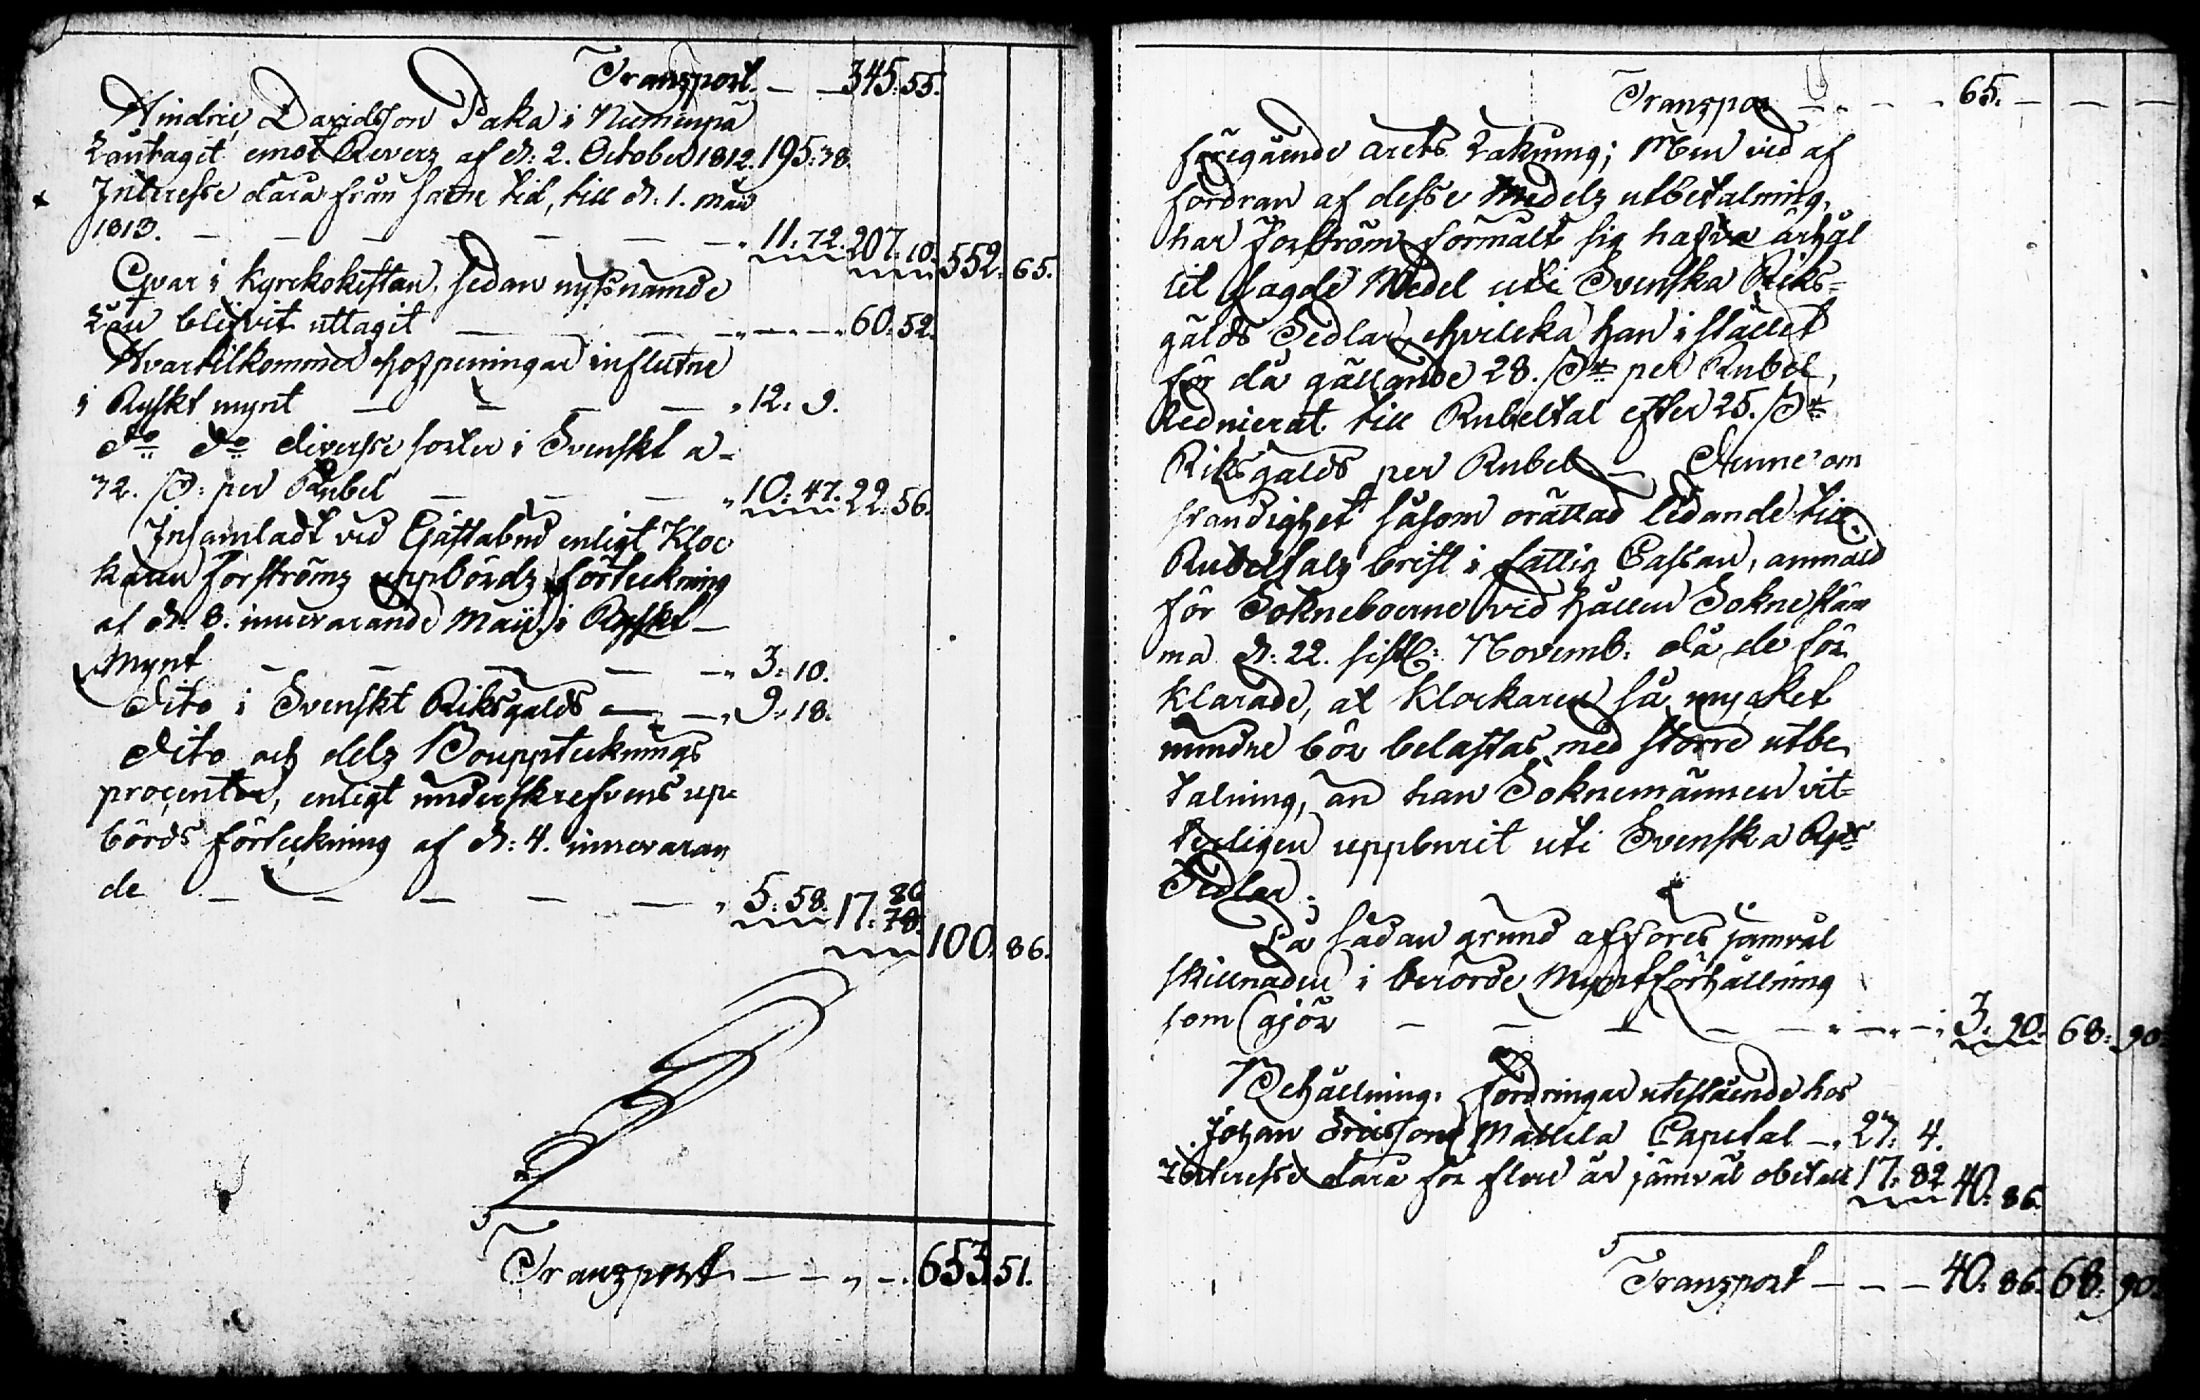 Transport. — — 345: 55.
Hindric Davidsson Paka i Niemenpä
Låntagit emot Reverz af d: 2. October 1812. 195: 38.
Interesse dära från samme tid, till d. 1. Maii
1813. — — — — — — 11: 72. 207: 10. 552: 65.
Qvar i kyrckokistan, sedan nyssnämde
Lån blifvit uttagit — — — — 60: 52.
Hvartilkommer Hofpeningar influtne
i Ryskt mynt — — — — 12: 9.
do do diverse sorter i Svenskt a
32. ß: per Rubel — — — 10: 47. 22: 56.
Insamladt vid Gjästabud enligt Kloc
karen Forströmz uppbördz förteckning
af d. 8. innevarande Maii, i Ryskt
Mynt — — — — — 3: 10.
Dito i Svenskt Riksgälds — — 9: 18.
Dito och delz Bouppteknings
procenter, enligt underskrefvens upp
börds förteckning af d: 4. innevaran
de — — — — — 5: 58. 17: 86 100. 86.
Transport — — — 653. 51.
Transpor — — — 65. — — —
föregående årets Räkning; Men vid af
fordran af desse Medelz utbetalning,
har Forström förmält sig hafva ärhål
lit sagde Medel uti Svenska Riks=
gälds Sedlar, hvilcka han i stället
för då gällande 28. ß per Rubel,
Reducerat till Rubeltal efter 25. ß
Riksgälds per Rubel — Denne om
ständighet såsom orättad ledande till
Rubeltalz brist i fattig Cassan, anmäld
för Sokneboerne vid hållen Soknestäm
ma d: 22. sistl: Novemb: då de för
klarade, at Klockaren så mycket
mindre bör belastas med större utbe
talning, än han Soknemännen vit=
terligen uppburit uti Svenska Rgs
Sedlar.
På sådan grund afföres jämväl
skillnaden i berörde Myntförhållning
som gjör — — — — — 3. 90. 68: 90.
Behållning. Fordringar utestående hos
Johan Ericsson Mattila Capital — 23: 4.
Interesse dära för flere år jämväl obetalt 17: 82 40: 86.
Transport — — — 40: 86. 68: 90.